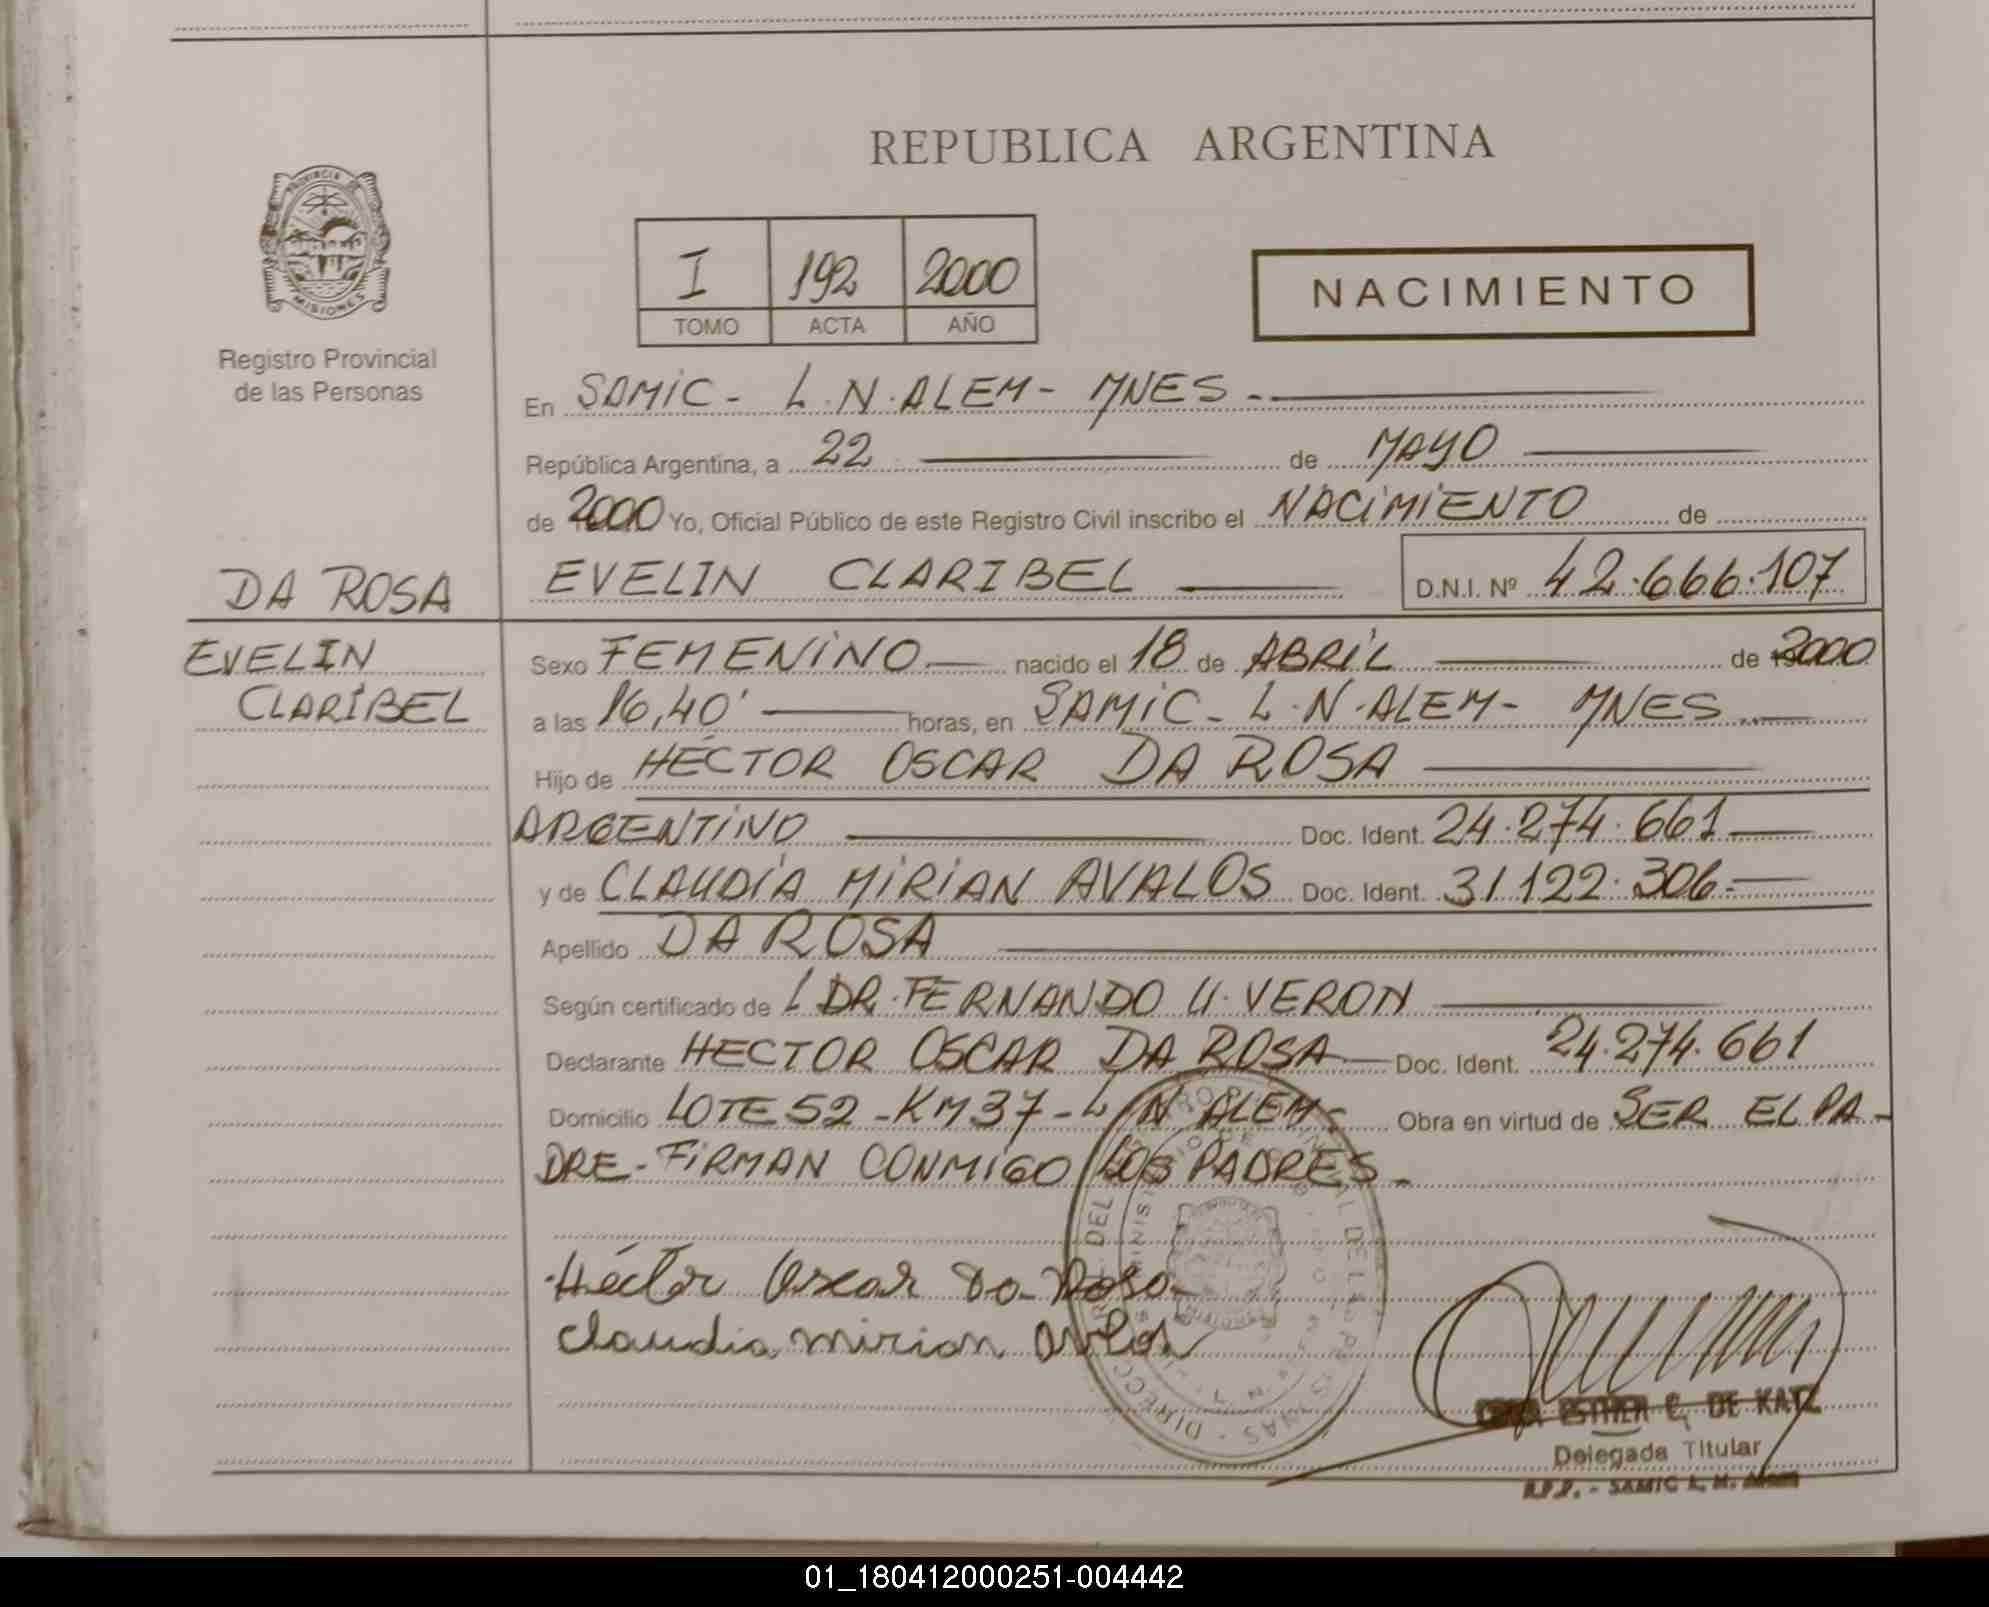 REPUBLICA ARGENTINA
PROVINCIA DE
MISIONES
Registro Provincial
de las Personas
I 192 2000
TOMO ACTA AÑO
NACIMIENTO
En SAMIC - L.N.ALEM - MNES -
República Argentina, a 22 de MAYO
de 2000 Yo, Oficial Público de este Registro Civil inscribo el NACIMIENTO de
DA ROSA
EVELIN CLARIBEL D.N.I. Nº 42.666.107
EVELIN
CLARIBEL
Sexo FEMENINO nacido el 18 de ABRIL de 2000
a las 16,40' horas, en SAMIC - L.N.ALEM - MNES
Hijo de HÉCTOR OSCAR DA ROSA
ARGENTINO Doc. Ident. 24.274.661
y de CLAUDIA MIRIAN AVALOS Doc. Ident. 31.122.306.
Apellido DA ROSA
Según certificado de L DR. FERNANDO U. VERON
Declarante HECTOR OSCAR DA ROSA Doc. Ident. 24.274.661
Domicilio LOTE 52 - KM 37 - L N ALEM - Obra en virtud de SER EL PA-
DRE - FIRMAN CONMIGO LOS PADRES -
Héctor Oscar Da Rosa
Claudia Mirian Avalos
ESTHER C. DE KATZ
Delegada Titular
R.P.P. - SAMIC L. N. Alem
01_180412000251-004442